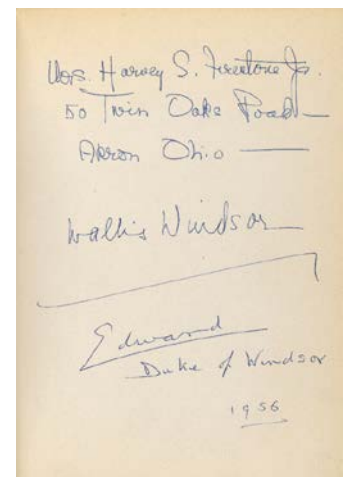 Mrs. Harvey S. Firestone Jr.
50 Twin Oaks Road
Akron Ohio
Wallis Windsor
Edward
Duke of Windsor
1956